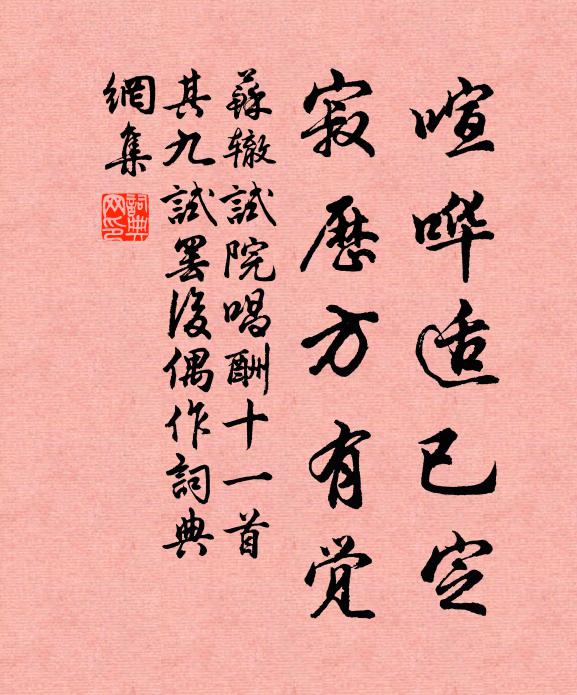 喧哗适已定
寂历方有觉
蘇辙試院唱酬十一首
其九試罢後偶作詞典
網集
詞典
网印